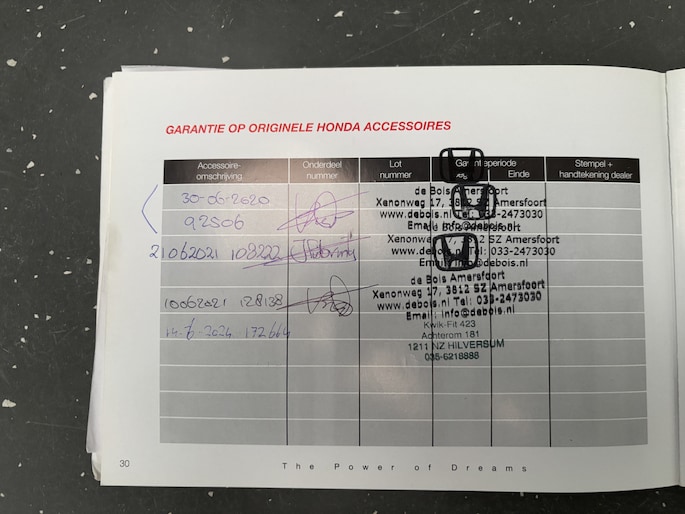 GARANTIE OP ORIGINELE HONDA ACCESSOIRES
Accessoire-omschrijving Onderdeel nummer Lot nummer Garantieperiode Einde Stempel + handtekening dealer
30-06-2020
92506
de Bois Amersfoort
Xenonweg 17, 3812 SZ Amersfoort
www.debois.nl Tel: 033-2473030
Email: info@debois.nl
21062021 108222
de Bois Amersfoort
Xenonweg 17, 3812 SZ Amersfoort
www.debois.nl Tel: 033-2473030
Email: info@debois.nl
10062021 128138
de Bois Amersfoort
Xenonweg 17, 3812 SZ Amersfoort
www.debois.nl Tel: 033-2473030
Email: info@debois.nl
14-6-2024 172664
Kwik-Fit 423
Achterom 181
1211 NZ HILVERSUM
035-6218888
30
The Power of Dreams